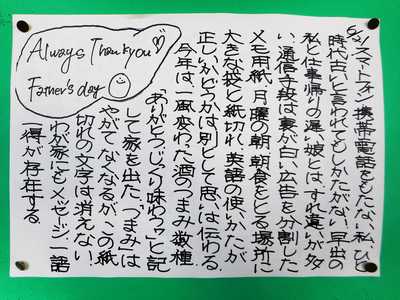 6/21スマートフォン、携帯電話をもたない私。ひと
時代古いと言われてもしかたがない。早出の
私と仕事帰りの遅い娘とは、すれ違いが多
い。通信手段は裏が白い広告を分割した
メモ用紙。月曜の朝、朝食をとる場所に
大きな袋と紙切れ。英語の使いかたが
正しいかどうかは別として思いは伝わる。
今年は一風変わった酒のつまみ数種
Always Thank you♡
Father's day
ありがとう、じっくり味わうヮ」と記
して家を出た。「つまみ」は
やがてなくなるが、この紙
切れの文字は消えない。
わが家にもメッセージ一語
一得が存在する。